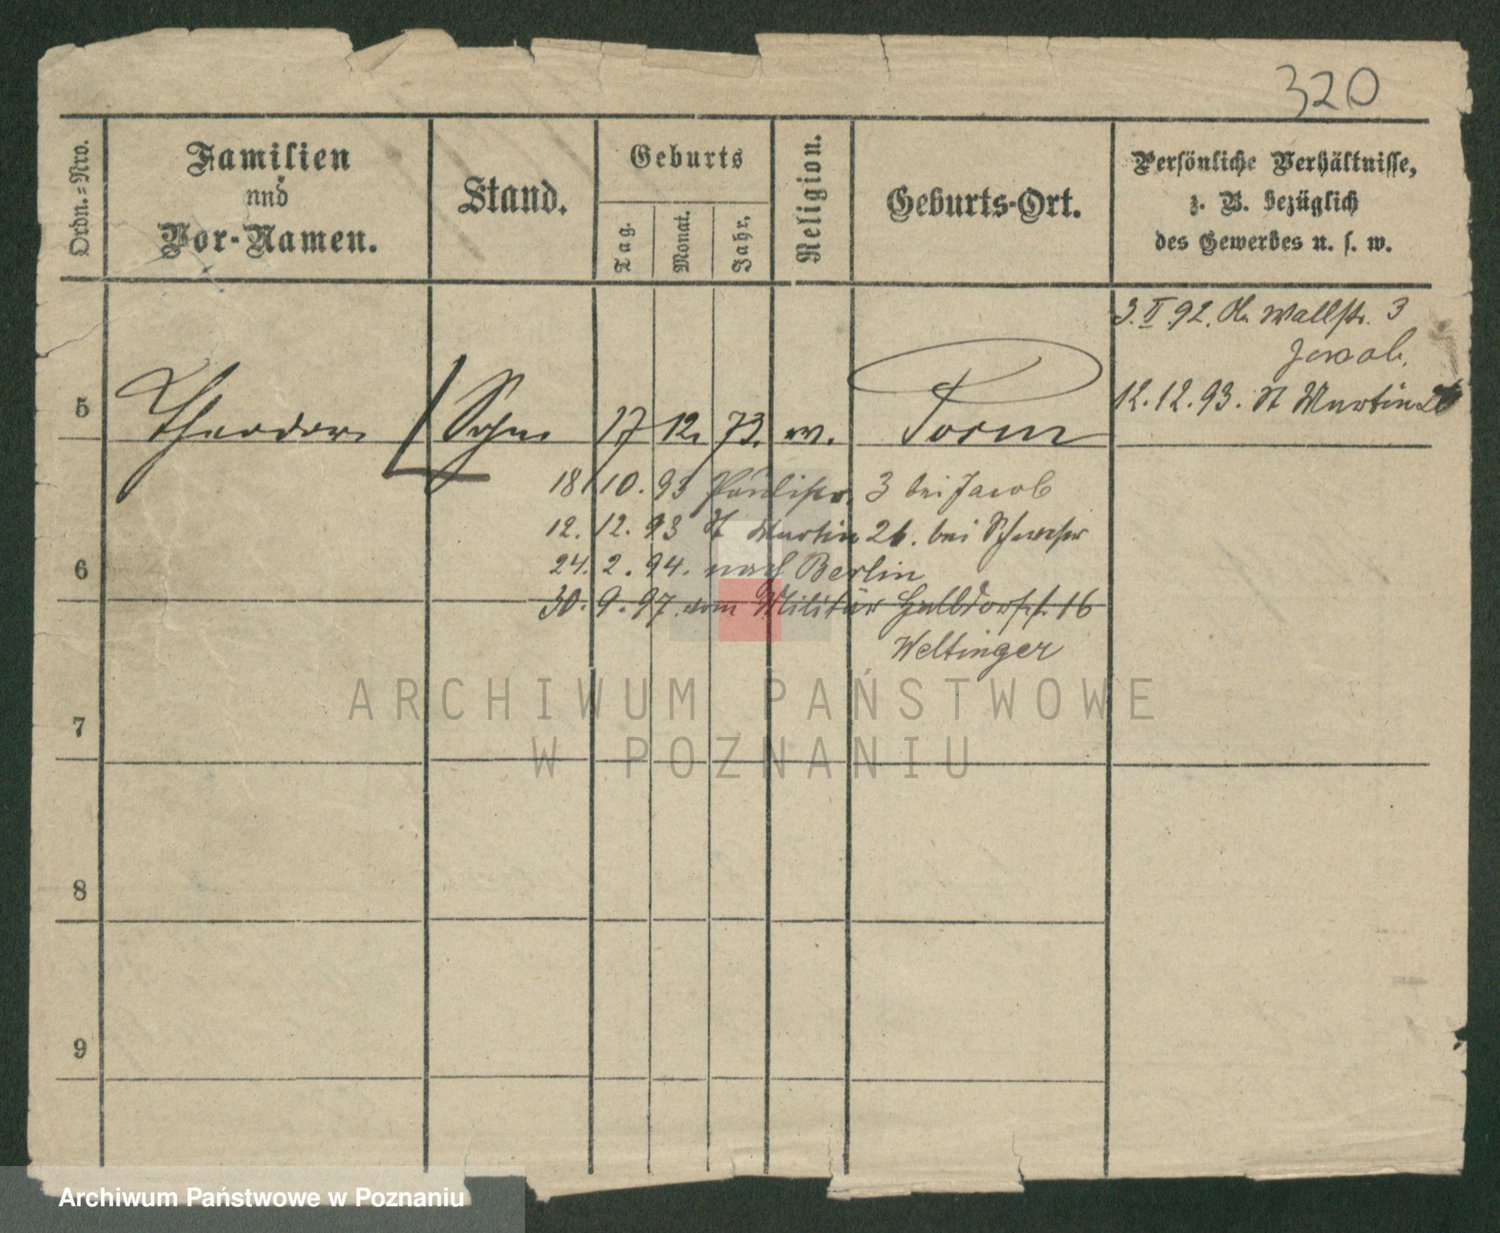 320
Ordn.=Nro.
Familien
und
Vor-Namen.
Stand.
Geburts
Tag.
Monat.
Jahr.
Religion.
Geburts-Ort.
Persönliche Verhältnisse,
z. B. bezüglich
des Gewerbes u. s. w.
3. II 92. Wallstr. 3
Jacob.
12.12.93. St Martin
5 Theodor Sohn 17 12. 73. Posen
18 10. 93 3 bei Jacob
12. 12. 93 St Martin 26. bei
6
24. 2. 94. nach Berlin
30. 9. 97. vom Militär Halbdorfstr. 16
Weltinger
7
8
9
ARCHIWUM PAŃSTWOWE
W POZNANIU
Archiwum Państwowe w Poznaniu